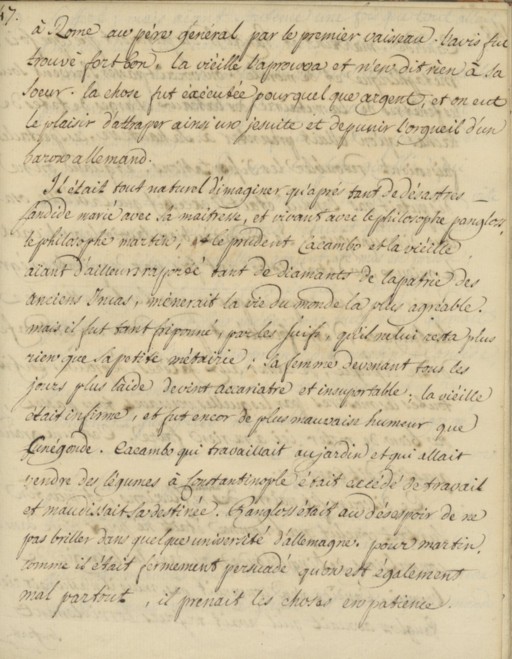 47.
à Rome au père général par le premier vaisseau. l'avis fut
trouvé fort bon. la vieille l'aprouva et n'en dit rien à sa
soeur. la chose fut exécutée pour quelque argent, et on eut
le plaisir d'attraper ainsi un jesuite et de punir l'orgueil d'un
baron allemand.
Il était tout naturel d'imaginer qu'après tant de désastres
Candide marié avec sa maitresse, et vivant avec le philosophe pangloss,
le philosophe martin, et le prudent Cacambo et la vieille,
aiant d'ailleurs raporté tant de diamants de la patrie des
anciens Incas, mènerait la vie du monde la plus agréable.
mais il fut tant friponné par les juifs, qu'il ne lui resta plus
rien que sa petite métairie; sa femme devenant tous les
jours plus laide devint acariatre et insuportable; la vieille
était infirme, et fut encor de plus mauvaise humeur que
Cunégonde. Cacambo qui travaillait au jardin et qui allait
vendre des légumes à Constantinople était excédé de travail
et maudissait sa destinée. Pangloss était au désespoir de ne
pas briller dans quelque université d'allemagne. pour martin,
comme il était fermement persuadé qu'on est également
mal partout, il prenait les choses en patience.